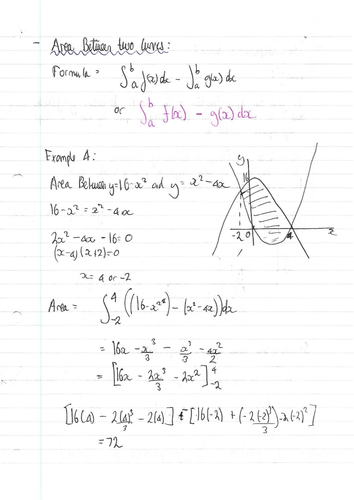 - Area Between two Curves:
Formula = ∫ₐᵇ f(x)dx - ∫ₐᵇ g(x)dx
or ∫ₐᵇ f(x) - g(x)dx
Example 4:
Area Between y=16-x² and y= x²-4x
16-x² = x²-4x
2x² - 4x - 16=0
(x-4)(x+2)=0
x= 4 or -2
y
16
-2 0 4 x
Area = ∫₋₂⁴ ((16-x²) - (x²-4x))dx
= 16x - x³/3 - x³/3 - 4x²/2
= [16x - 2x³/3 - 2x²]⁴₋₂
[16(4) - 2(4)³/3 - 2(4)] - [16(-2) + (-2(-2)³/3) - 2(-2)²]
= 72